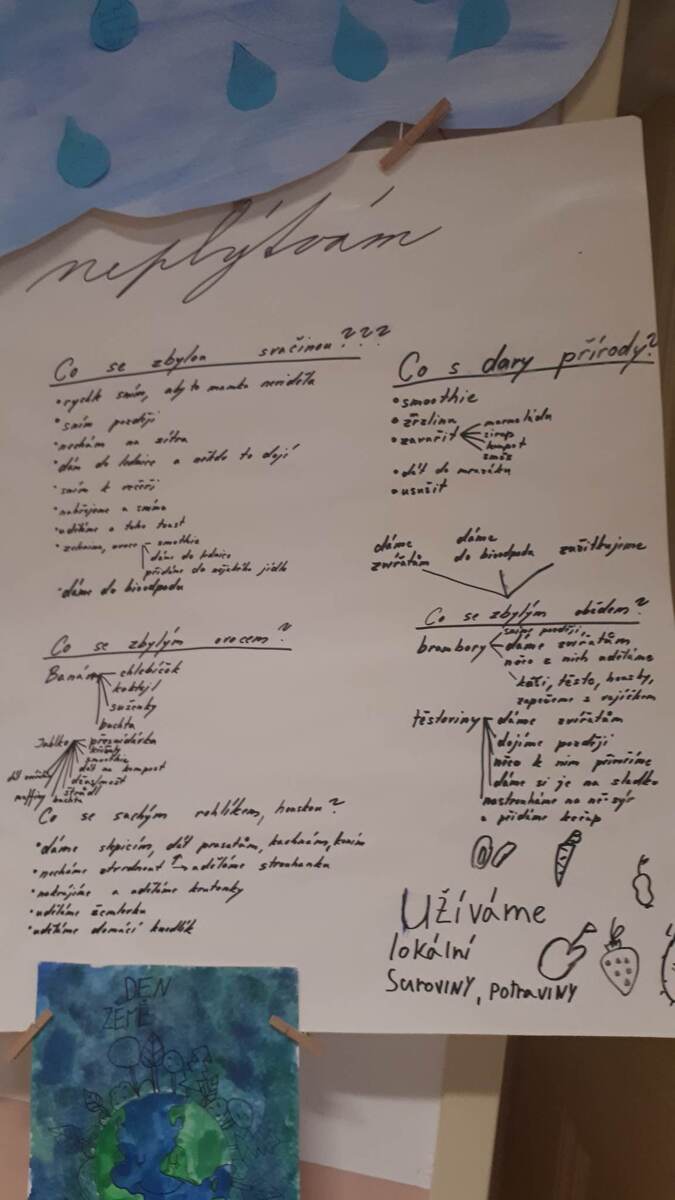 neplýtvám
Co se zbylou svačinou???
• rychle sním, aby to mamka neviděla
• sním později
• nechám na zítra
• dám do lednice a někdo to dojí
• sním k večeři
• nakrájeme a sníme
• uděláme z toho toast
• zelenina, ovoce smothie
dáme do lednice
přidáme do nějakého jídla
• dáme do bioodpadu
Co se zbylým ovocem?
Banám chlebíček
koktejl
sušenky
buchta
Jablko přesnídávka
křížaly
smoothie
dát na kompost
džus/mošt
štrůdl
buchta
muffiny
Co se suchým rohlíkem, houskou?
• dáme slepicím, dát prasatům, kachnám, koním
• necháme ztvrdnout uděláme strouhanku
• nakrájíme a uděláme krutonky
• uděláme žemlovku
• uděláme domácí knedlík
Co s dary přírody?
• smoothie
• zmrzlina
• zavařit marmeláda
sirup
kompot
směs
• dát do mrazáku
• usušit
dáme zvířatům
dáme do bioodpadu
zužitkujeme
Co se zbylým obědem?
brambory sníme později,
dáme zvířatům
něco z nich uděláme
kaši, těsto, housky,
zapečeme s vajíčkem
těstoviny dáme zvířatům
dojíme později
něco k nim přivaříme
dáme si je na sladko
nastrouháme na ně sýr
a přidáme kečup
Užíváme
lokální
suroviny, potraviny
DEN
ZEMĚ